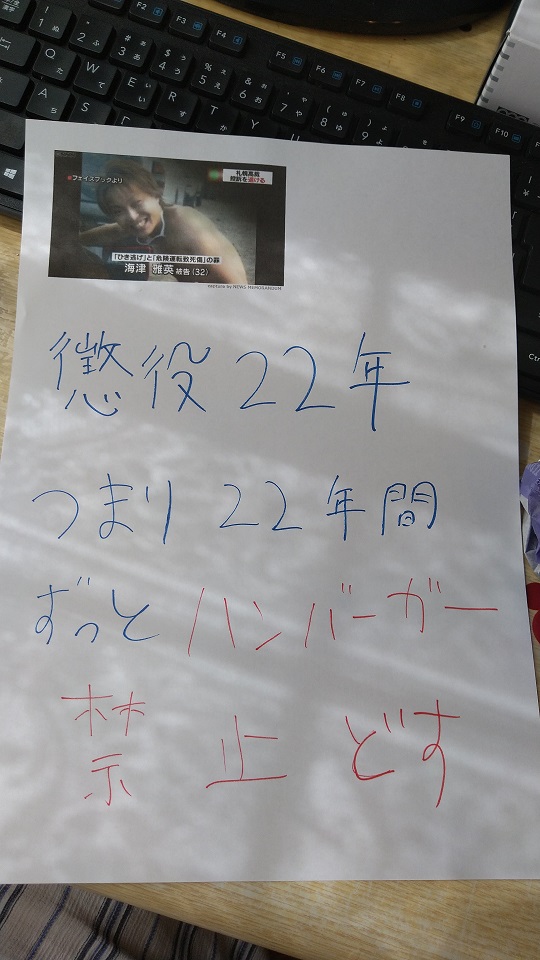 F1
F2
F3
F4
F5
F6
F7
F8
F9
F10
Q
W
E
R
T
Y
U
A
S
D
F
Ctrl
●フェイスブックより
札幌高裁
控訴を退ける
「ひき逃げ」と「危険運転致死傷」の罪
海津 雅英 被告(32)
capture by NEWS MEMORANDUM
懲役22年
つまり 22年間
ずっと ハンバーガー
禁止どす